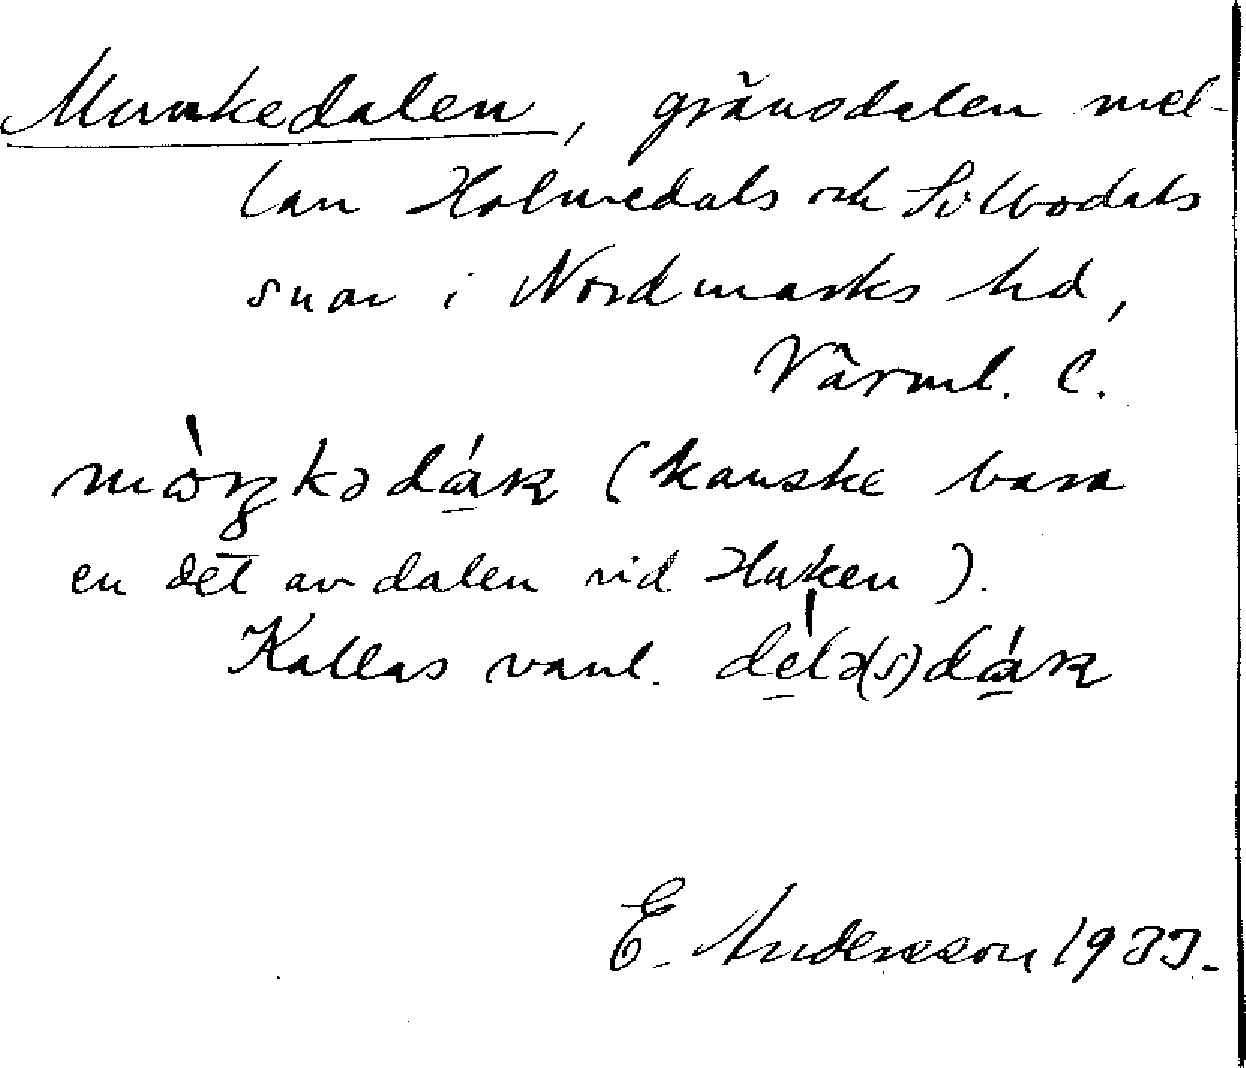 Munkedalen, gränsdalen mel-
lan Holmedals och Sillbodals
snar i Nordmarks hd,
Värml. l.
(kanske bara
en del av dalen vid Haken).
Kallas vanl.
E. Andersson 1933.